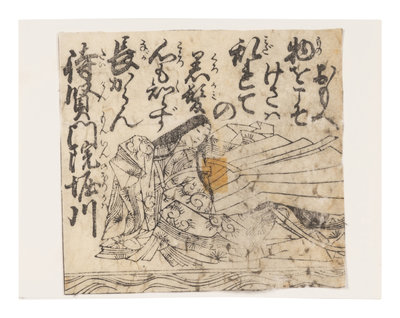 待賢門院堀川
長からん
心も知らず
黒髪
の
乱れて
けさハ
物をこそ
おもへ